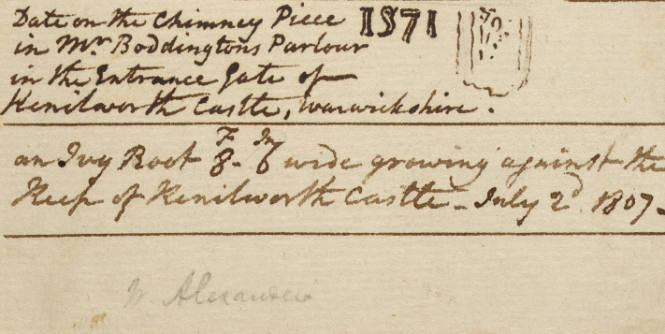 Date on the Chimney Piece 1571
in Mr. Boddingtons Parlour
in the Entrance Gate of
Kenilworth Castle, Warwickshire.
an Ivy Root 8F- 6In wide growing against the
Keep of Kenilworth Castle - July 2d 1807-
W. Alexander